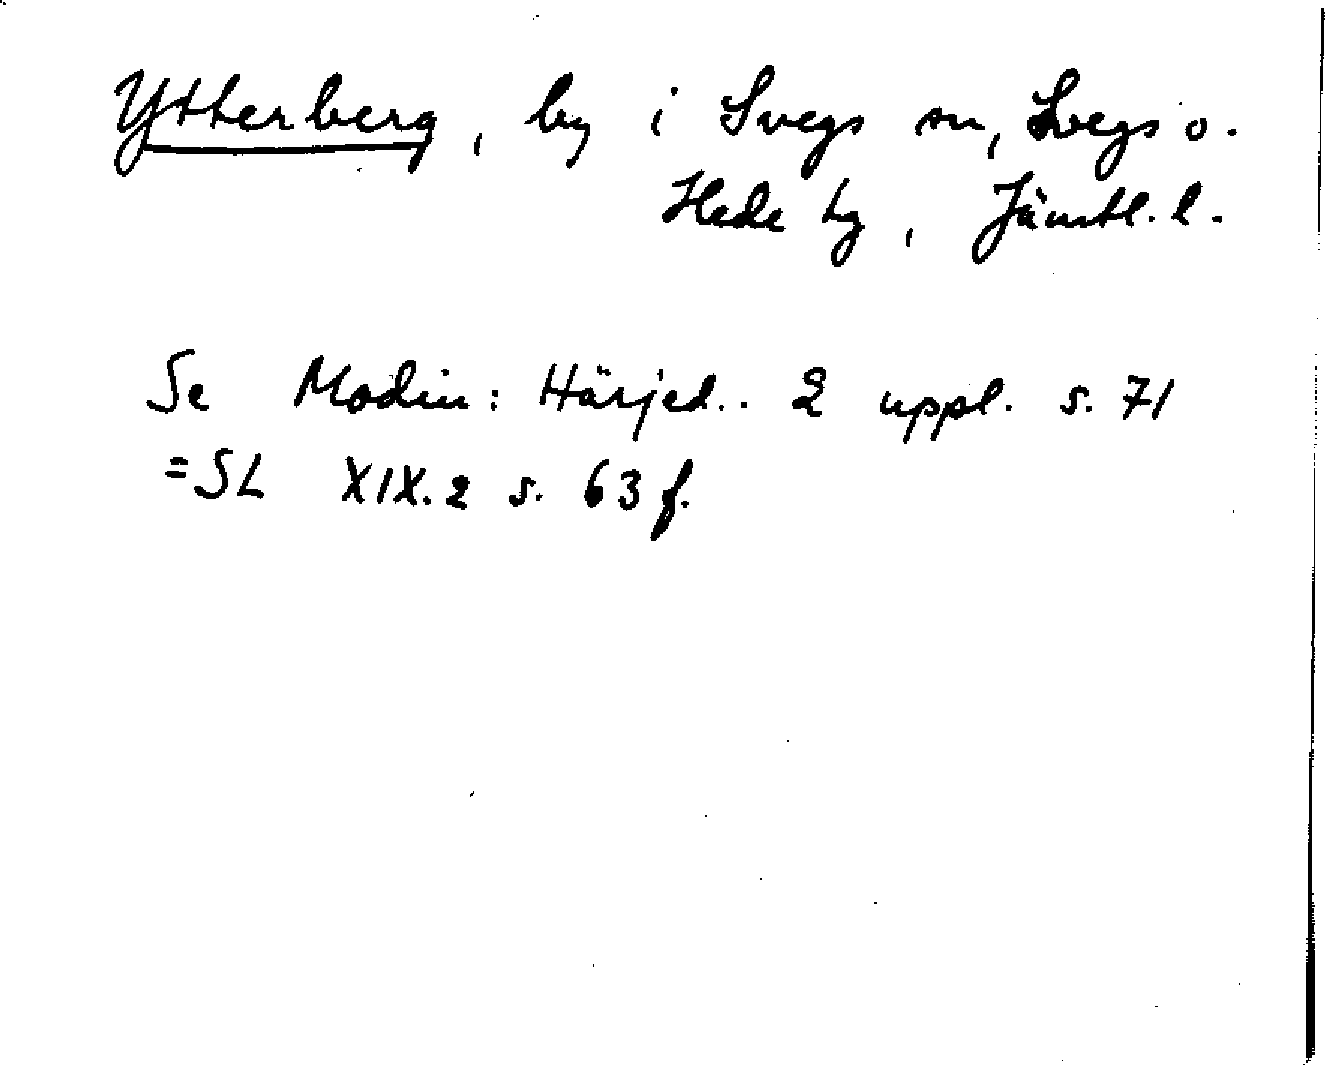 Ytterberg, by i Svegs sn, Svegs o.
Hede tg, Jämtl. l.
Se Modin: Härjed.. 2 uppl. s. 71
= SL XIX.2 s. 63 f.